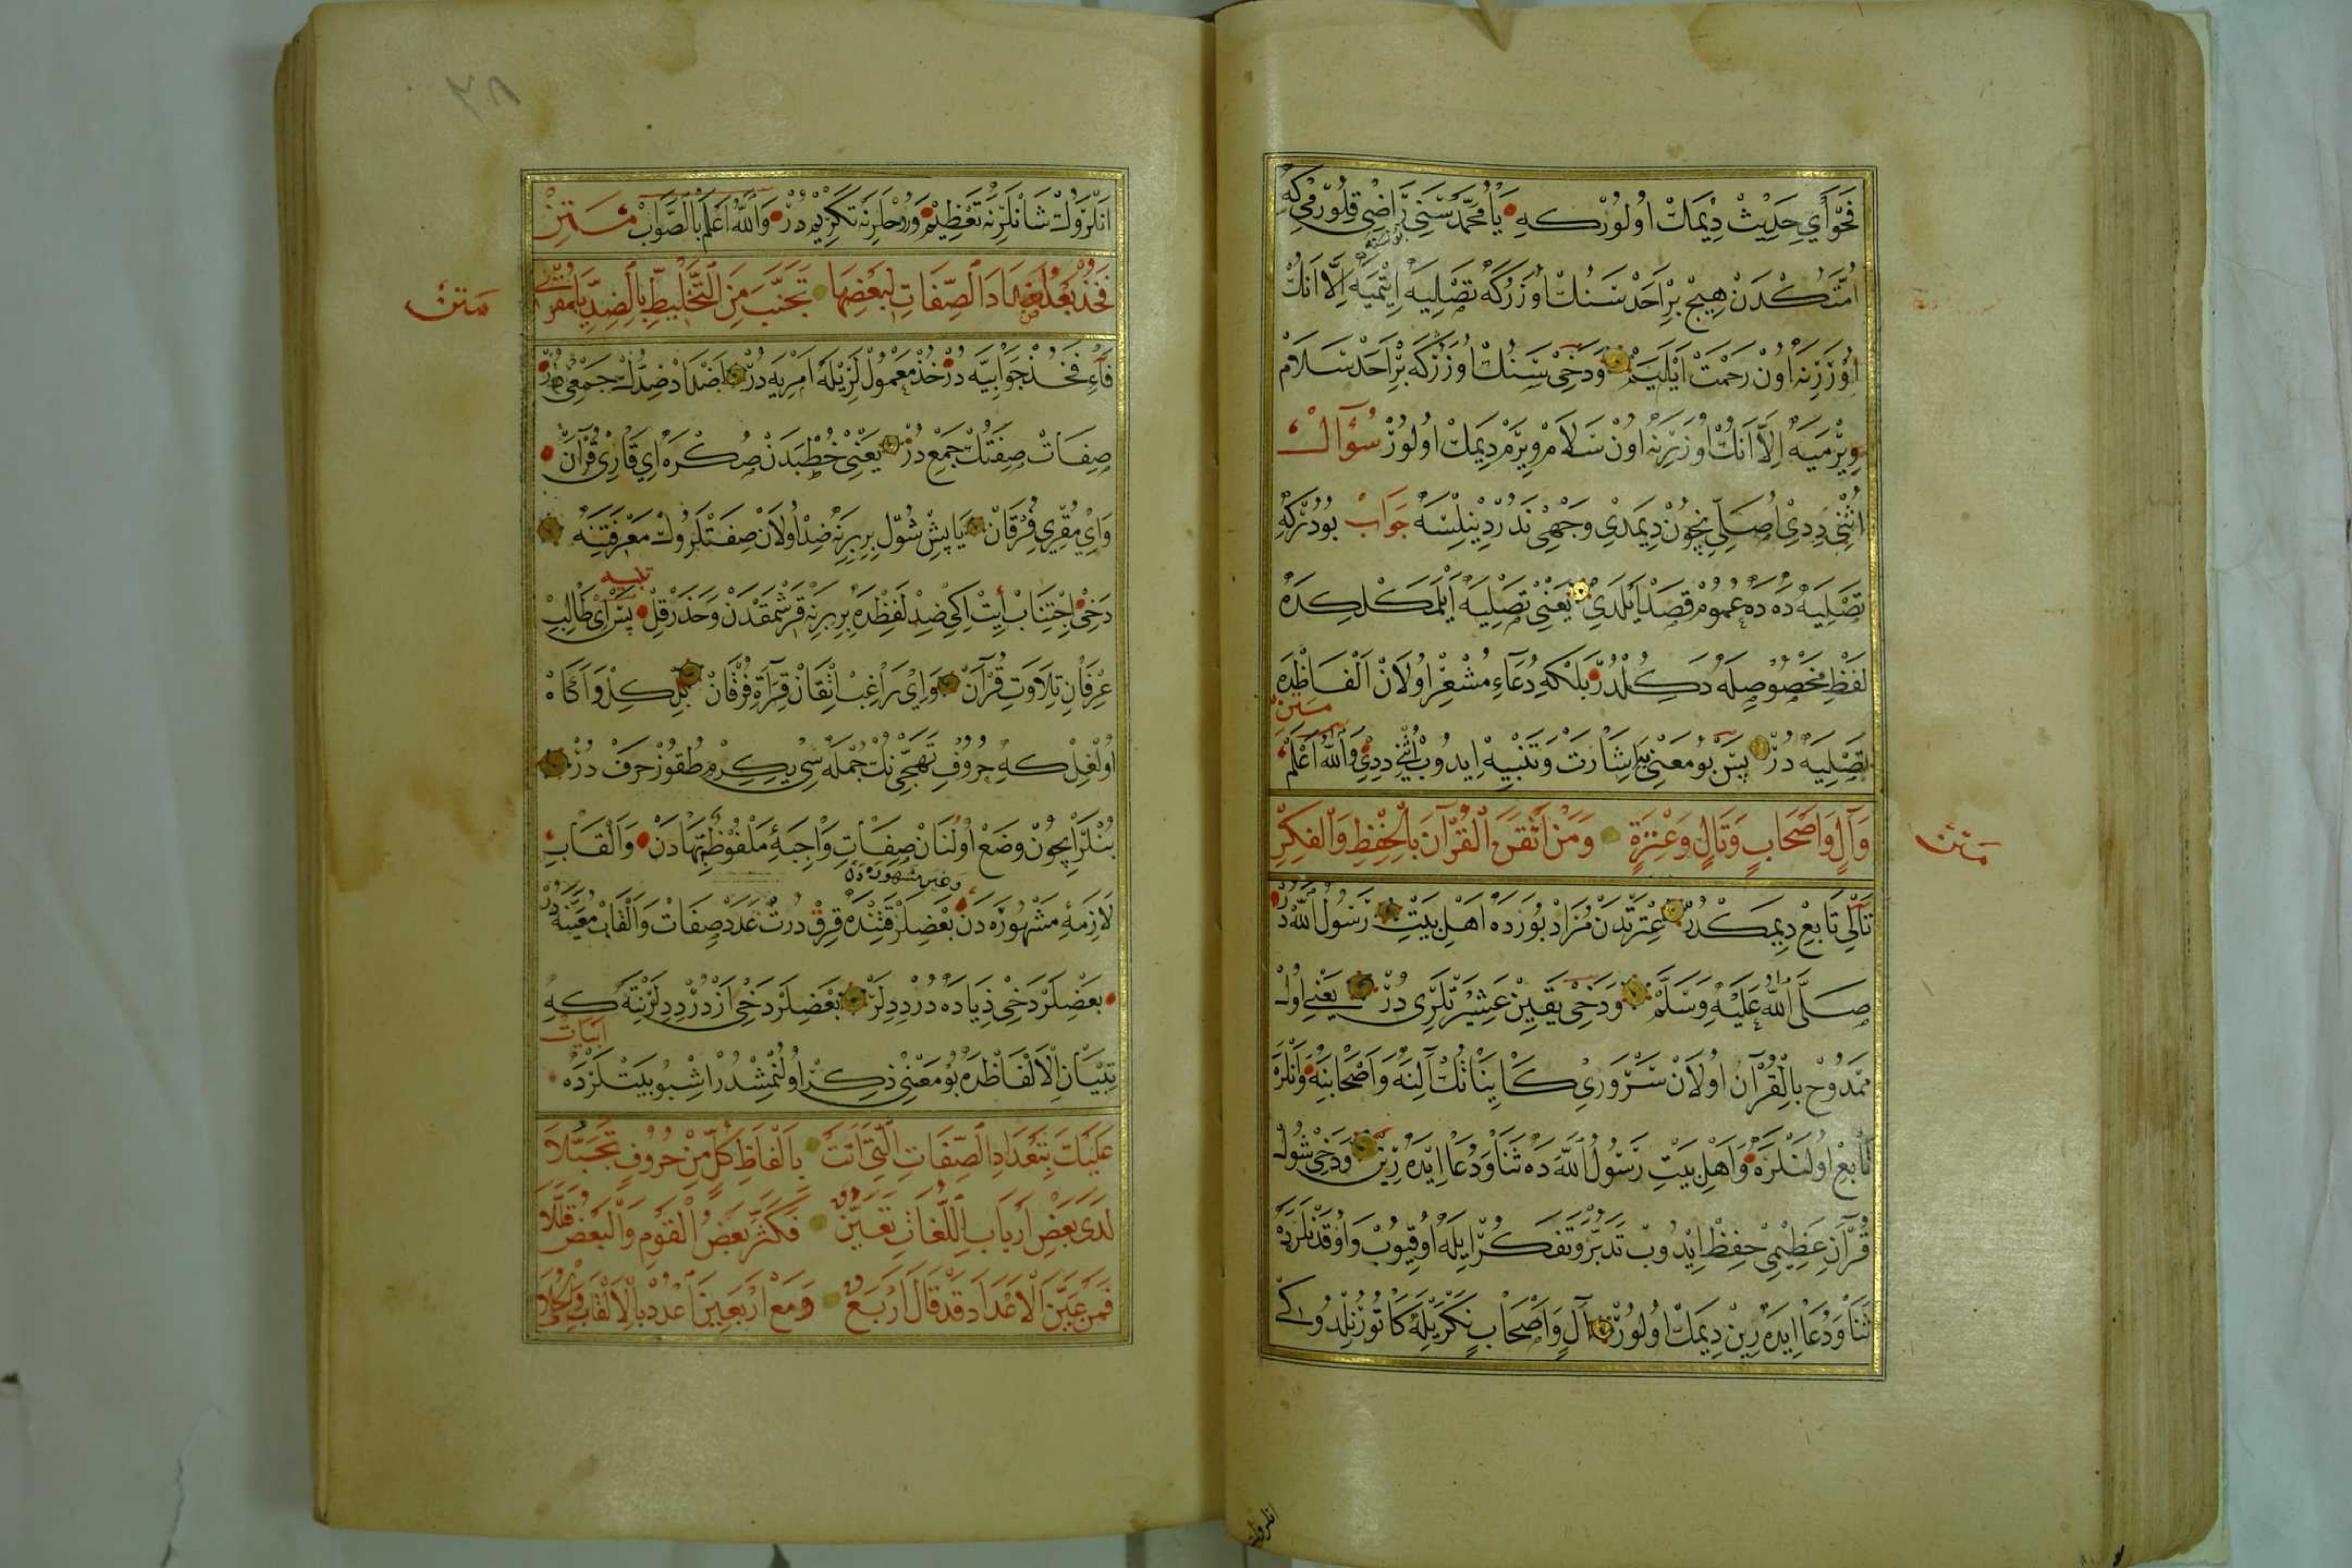 فَحْوَاىِ حَدِيثْ دِيمَكْ اُولُورْكِه يَا مُحَمَّدْ سَنِى رَاضِى قِلُورْمِى كِه
اُمَّتُكْدَنْ هِيچْ بِرْ اَحَدْ سَنُكْ اُوزَرِكَه تَصْلِيَه اِيتْمَيَه اِلَّا اَنُكْ
اُوزَرِنَه اُونْ رَحْمَتْ اَيْلَيَمْ وَدَخِى سَنُكْ اُوزَرِكَه بِرْ اَحَدْ سَلَامْ
وِيرْمَيَه اِلَّا اَنُكْ اُوزَرِنَه اُونْ سَلَامْ وِيرَمْ دِيمَكْ اُولُورْ سُؤَالْ
اُثْنِى دِدِى اُصَلِّى نِچُونْ دِيمَدِى وَجْهِى نَدُرْ دِينِلْسَه جَوَابْ بُودُرْكِه
تَصْلِيَه دَه دَه عُمُومْ قَصْدْ اَيْلَدِى يَعْنِى تَصْلِيَه اَيْلَمَكْلِكْدَه
لَفْظِ مَخْصُوصِلَه دَكُلْدُرْ بَلْكِه دُعَاءِ مُشْعِرْ اُولَانْ اَلْفَاظْدَه
مَتِنْ
تَصْلِيَه دُرْ پَسْ بُو مَعْنِيَه اِشَارَتْ وَتَنْبِيهْ اِيدُوبْ اُثْنِى دِدِى وَاللهُ اَعْلَمْ
مَتِنْ
وَآلٍ وَاَصْحَابٍ وَتَالٍ وَعِتْرَةٍ وَمَنْ اَتْقَنَ الْقُرْآنَ بِالْحِفْظِ وَالْفِكْرِ
تَالِى تَابِعْ دِيمَكْدُرْ عِتْرَتْدَنْ مُرَادْ بُورَدَه اَهْلِ بَيْتِ رَسُولُ اللهْ دُرْ
صَلَّى اللهُ عَلَيْهِ وَسَلَّمْ وَدَخِى يَقِينْ عَشِيرَتْلَرِى دُرْ يَعْنِى اُولْ
مَمْدُوحْ بِالْقُرْآنْ اُولَانْ سَرْوَرِى كَائِنَاتُكْ آلِنَه وَاَصْحَابِنَه وَانْلَرَه
تَابِعْ اُولَنْلَرَه وَاَهْلِ بَيْتِ رَسُولُ اللهْ دَه ثَنَا وَدُعَا اِيدَه رِينْ وَدَخِى شُولْ
قُرْآنِ عَظِيمِى حِفْظْ اِيدُوبْ تَدَبُّرْ وَتَفَكُّرْ اِيلَه اُوقِيُوبْ وَاُوقُدَنْلَرَه
ثَنَا وَدُعَا اِيدَه رِينْ دِيمَكْ اُولُورْ آلٍ وَاَصْحَابٍ نَكْرَيْلَه كَتُورِلْدُوكِى
انلروك
٣٨
اَنْلَرُوكْ شَانْلَرِنَه تَعْظِيمْ وَرُوحْلَرِنَه تَكْرِيمْ دُرْ وَاللهُ اَعْلَمْ بِالصَّوَابْ مَتِنْ
مَتِنْ
فَخُذْ بَعْدُ اَضْدَادَ الصِّفَاتِ لِبَعْضِهَا تَجَنَّبَ مِنَ التَّخْلِيطِ بِالضِّدِّ يَا مُقْرِى
فَاءِ فَخُذْ جَوَابِيَّه دُرْ خُذْ مَعْمُولْ لَرِيلَه اَمْرِيَه دُرْ اَضْدَادْ ضِدُّكْ جَمْعِى دُرْ
صِفَاتْ صِفَتُكْ جَمْعِ دُرْ يَعْنِى خُطْبَدَنْ صُكْرَه اِى قَارِئِ قُرْآنْ
وَاِى مُقْرِى فُرْقَانْ يَاپِشْ شُولْ بِرِبِرِنَه ضِدْ اُولَانْ صِفَتْلَرُوكْ مَعْرِفَتِنَه
تنبيه
دَخِى اِجْتِنَابْ اِيتْ اِكِى ضِدْ لَفْظِدَه بِرِبِرِنَه قَرِشْمَقْدَنْ وَحَذَرْ قِلْ پَسْ اِى طَالِبِ
عِرْفَانِ تِلَاوَتِ قُرْآنْ وَاِى رَاغِبِ اِتْقَانْ قِرَآءَةِ فُرْقَانْ بِلْكِلْ وَآكَاهْ
اُولْغِلْ كِه حُرُوفِ تَهَجِّى نِكْ جُمْلَه سِى يِكِرْمِ طُقُوزْ حَرْفْ دُرْ
بُنْلَرْ اِيچُونْ وَضْعْ اُولُنَانْ صِفَاتِ وَاجِبَهٔ مَلْفُوظَتِهَادَنْ وَاَلْقَابِ
وغير مشهوره دن
لَازِمَهٔ مَشْهُورَه دَنْ بَعْضِلَرْ قَتِنْدَه قِرِقْ دُرتْ عَدَدْ صِفَاتْ وَاَلْقَابْ مُعَيَّنَه دُرْ
بَعْضِلَرْ دَخِى زِيَادَه دُرْ دِدِلَرْ بَعْضِلَرْ دَخِى اَزْدُرْ دِدِلَرْ نِتَه كِه
اَبْيَاتْ
تِبْيَانْ اَلْاَلْفَاظْدَه بُو مَعْنِى ذِكِرْ اُولُنْمِشْدُرْ اُشْبُو بَيْتْلَرْدَه
عَلَيْكَ بِتَعْدَادِ الصِّفَاتِ الَّتِى اَتَتْ بِاَلْفَاظِ كُلٍّ مِنْ حُرُوفٍ تَحَبَّلَا
لَدَى بَعْضِ اَرْبَابِ اللُّغَاتِ تَعَيُّنٌ فَكَثَّرَ بَعْضُ الْقَوْمِ وَالْبَعْضُ قَلَّلَا
فَمَنْ عَيَّنَ الْاَعْدَادَ قَدْ قَالَ اَرْبَعٌ وَمَعْ اَرْبَعِينَ اعْدُدْ بِالْاَلْقَابِ